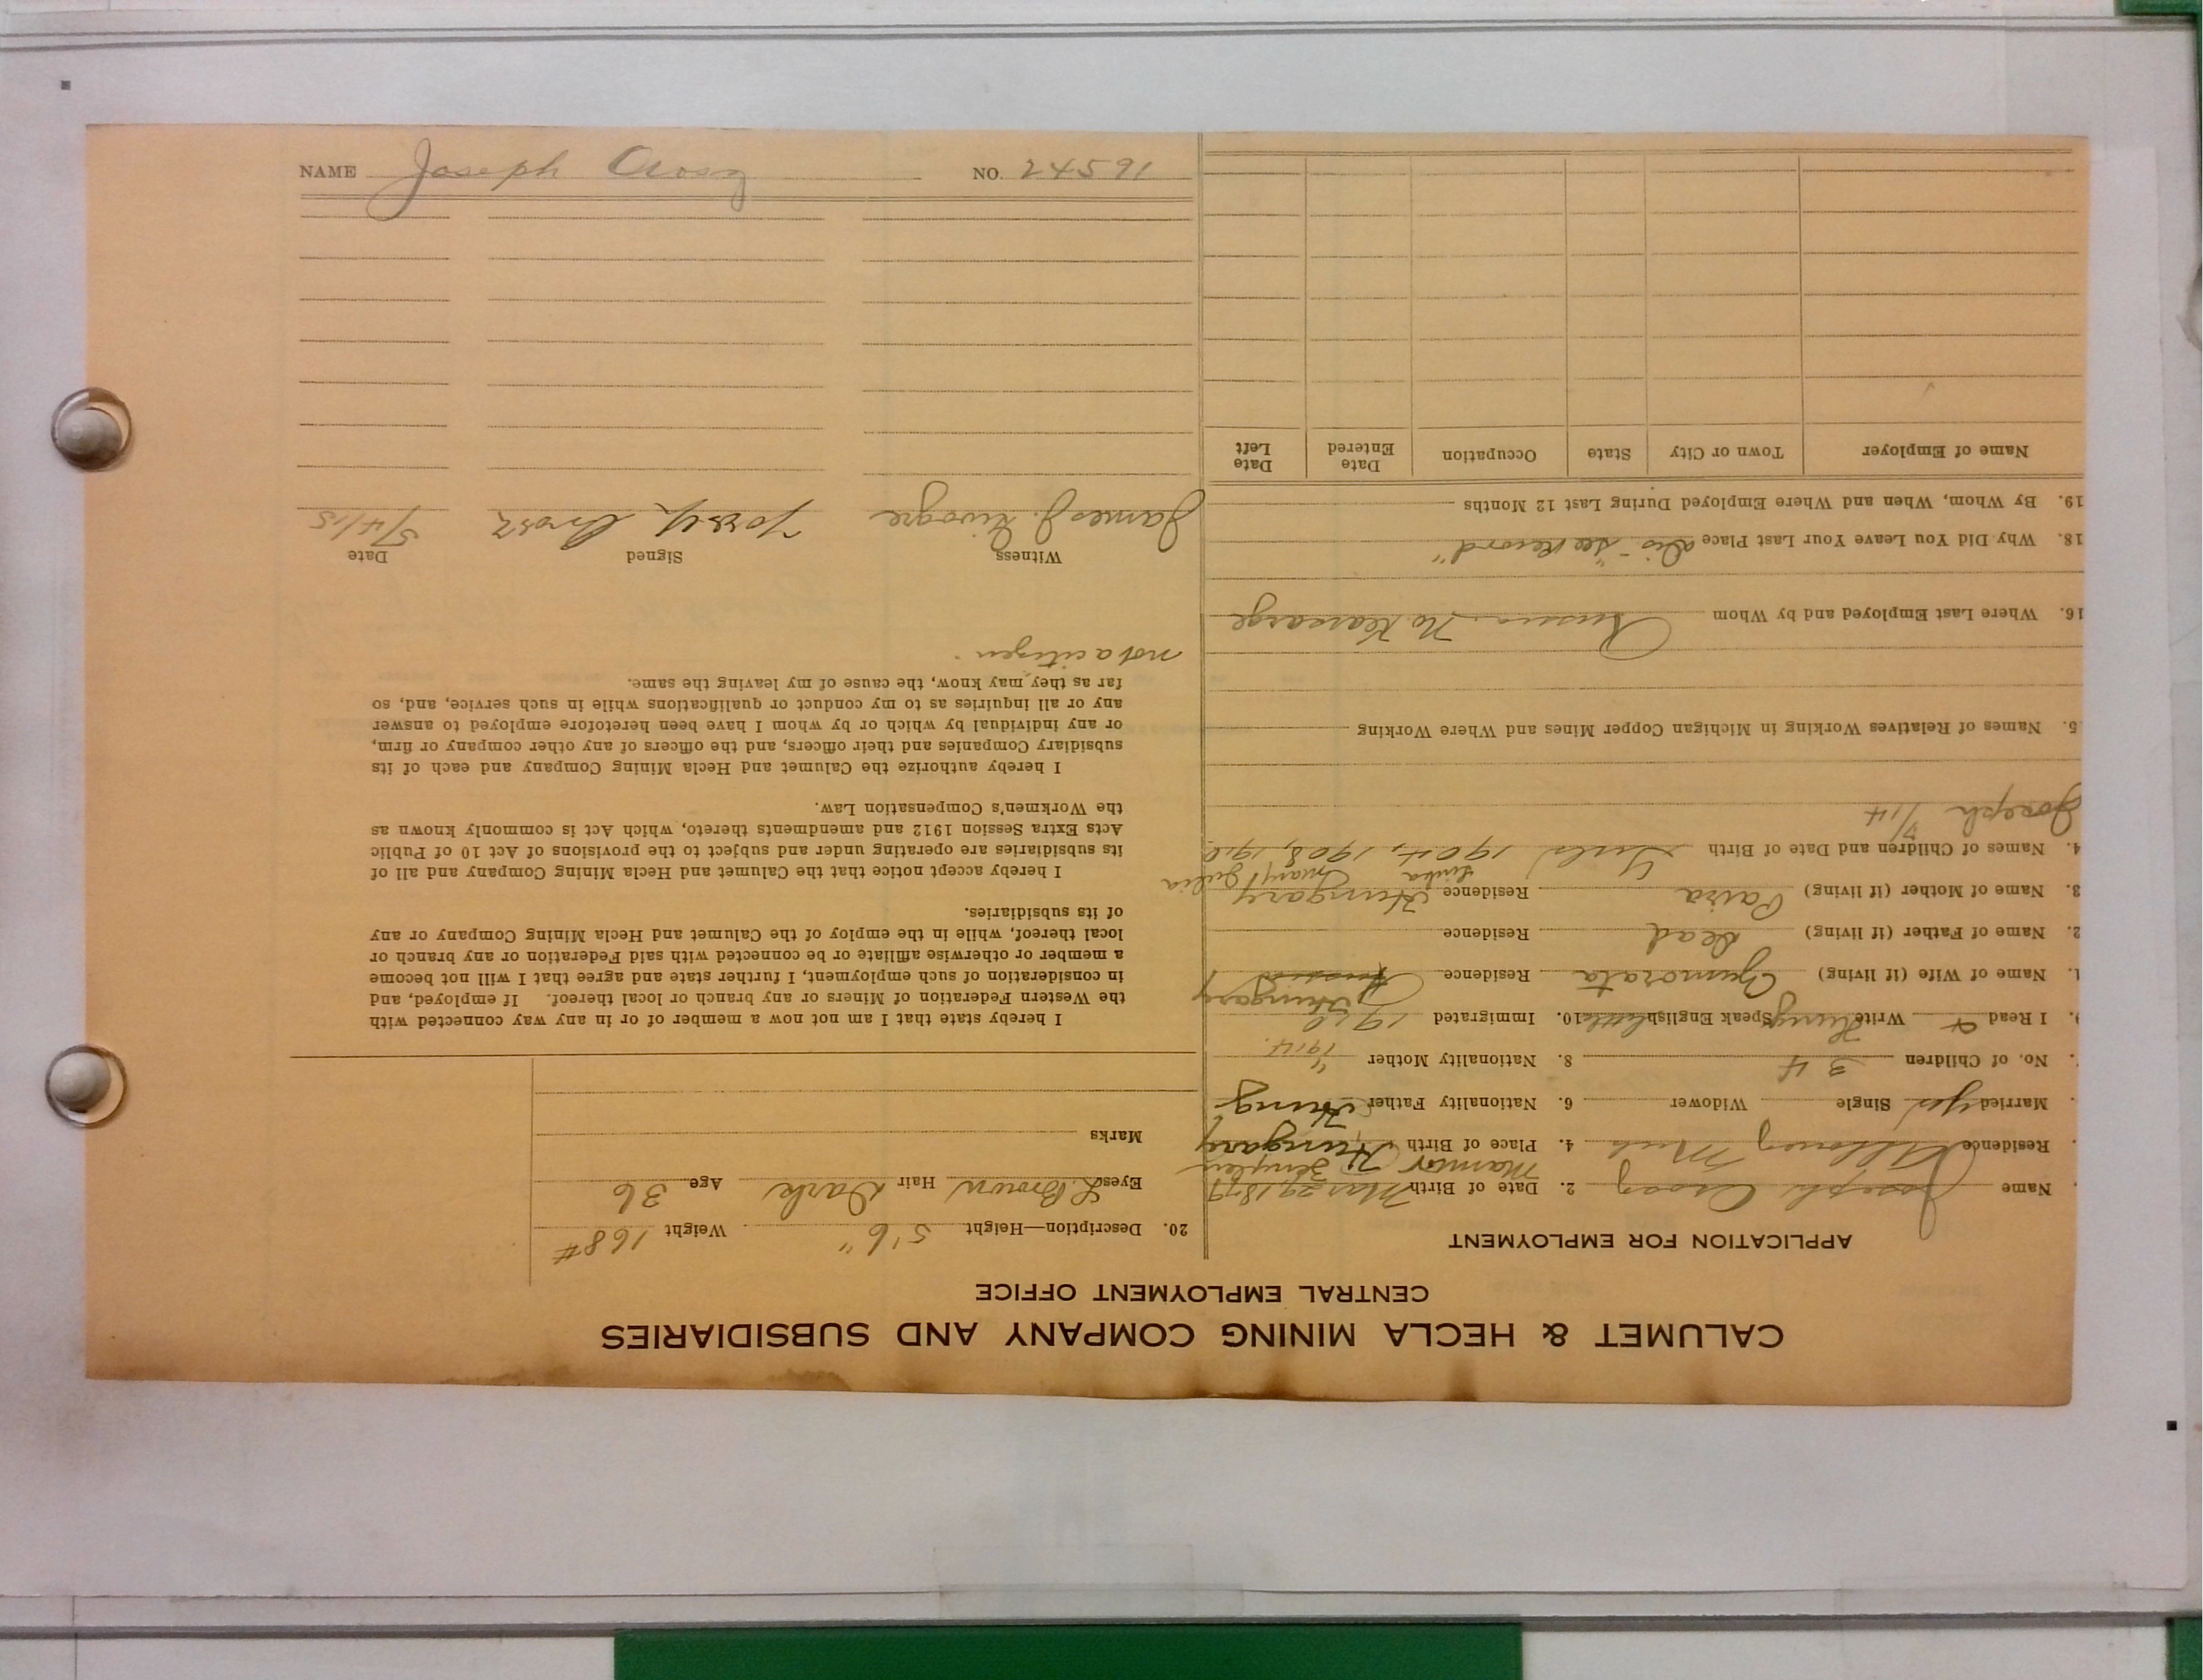 CALUMET & HECLA MINING COMPANY AND SUBSIDIARIES
CENTRAL EMPLOYMENT OFFICE
APPLICATION FOR EMPLOYMENT
Name Joseph 2. Date of Birth Mar 29, 1879
Residence Ahmeek Mich 4. Place of Birth Hungary
Married yes Single Widower 6. Nationality Father Hung
No. of Children 3 4 8. Nationality Mother "
1914
I Read & Write Hung Speak English little 10. Immigrated 1910
Hungary
1. Name of Wife (if living) Residence
2. Name of Father (if living) Dead Residence
3. Name of Mother (if living) Residence Hungary
Mary Julia
4. Names of Children and Date of Birth Girls 1904, 1908, 1910
Joseph /14
5. Names of Relatives Working in Michigan Copper Mines and Where Working
16. Where Last Employed and by Whom No Kearsarge
18. Why Did You Leave Your Last Place Dis "see Record"
19. By Whom, When and Where Employed During Last 12 Months
Name of Employer Town or City State Occupation Date Entered Date Left
20. Description—Height 5' 6" Weight 168#
Eyes L. Brown Hair Dark Age 36
Marks
I hereby state that I am not now a member of or in any way connected with
the Western Federation of Miners or any branch or local thereof. If employed, and
in consideration of such employment, I further state and agree that I will not become
a member or otherwise affiliate or be connected with said Federation or any branch or
local thereof, while in the employ of the Calumet and Hecla Mining Company or any
of its subsidiaries.
I hereby accept notice that the Calumet and Hecla Mining Company and all of
its subsidiaries are operating under and subject to the provisions of Act 10 of Public
Acts Extra Session 1912 and amendments thereto, which Act is commonly known as
the Workmen's Compensation Law.
I hereby authorize the Calumet and Hecla Mining Company and each of its
subsidiary Companies and their officers, and the officers of any other company or firm,
or any individual by which or by whom I have been heretofore employed to answer
any or all inquiries as to my conduct or qualifications while in such service, and, so
far as they may know, the cause of my leaving the same.
not a citizen.
Witness Signed Date
James J. 5/4/15
NAME Joseph NO. 24591